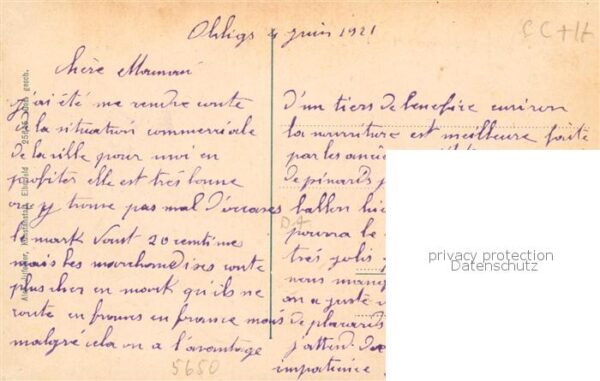 Ohligs 4 juin 1921
Chère Maman
j'ai été me rendre conte
de la situation commerciale
de la ville pour moi en
profiter elle est très bonne
on y trouve pas mal d'occases
le mark vaut 20 centimes
mais les marchandises coute
plus cher en mark qu'ils ne
coute en francs en france mais
malgré cela on a l'avantage
d'un tiers de benefice environ
la nourriture est meilleure faite
par les
de pinards
ballon
pourra le
très jolis
nous
on a juste
de placards
j'attend
impatience
CC+H
5650
privacy protection
Datenschutz